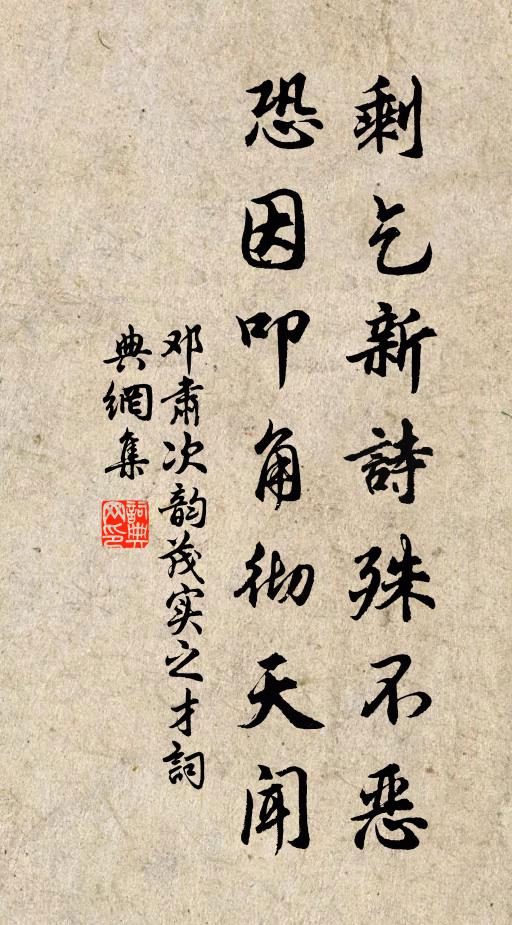 剩乞新詩殊不恶
恐因叩角彻天闻
邓肃次韵茂实之才詞
典網集
詞典
网印